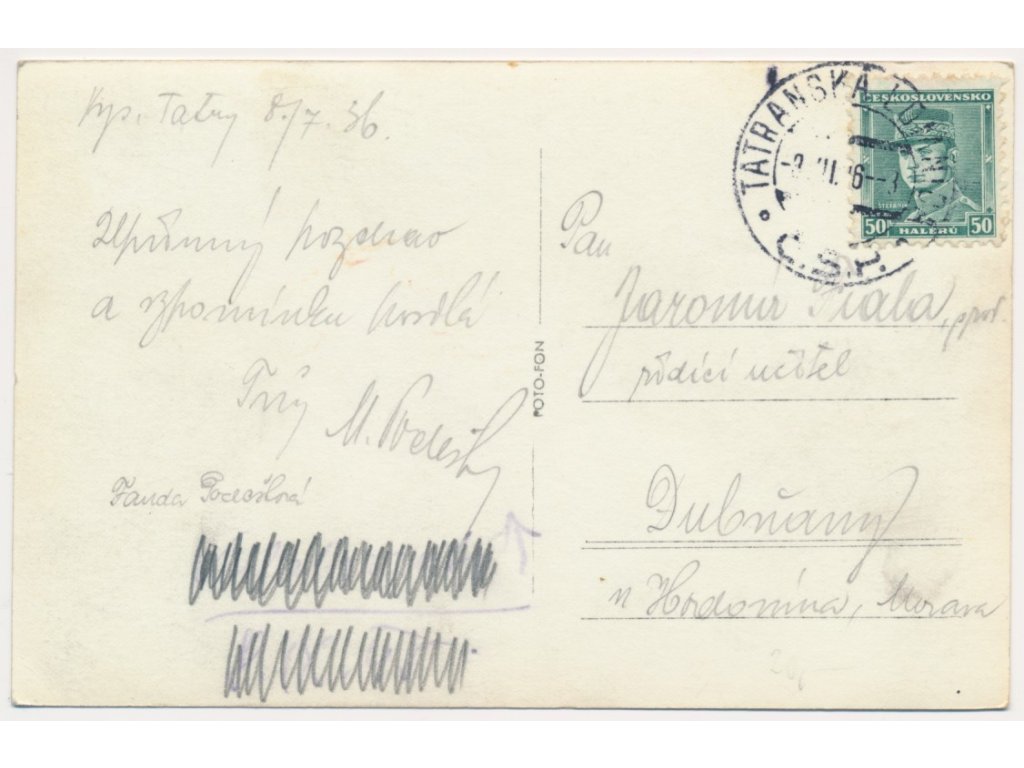 Vys. Tatry 8/7. 36.
Upřímný pozdrav
a vzpomínku posílá
Tvůj
M. Podešv
Fanda Podešvová
FOTO-FON
TATRANSKÁ
-8.VII.36-
Č.S.R.
ČESKOSLOVENSKO
ŠTEFÁNIK
50 HALÉŘŮ 50
Pan
Jaromír Fiala,
řídící učitel
Dubňany
u Hodonína, Morava